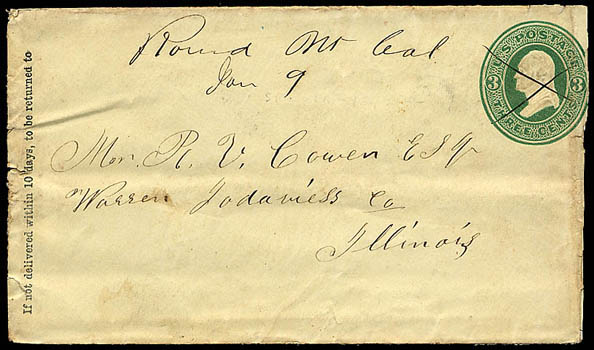 Round Mt Cal
Jan 9
U.S. POSTAGE
3 3
THREE CENTS
Mr. R. V. Cowen Esqr
Warren Jodaviess Co
Illinois
If not delivered within 10 days, to be returned to